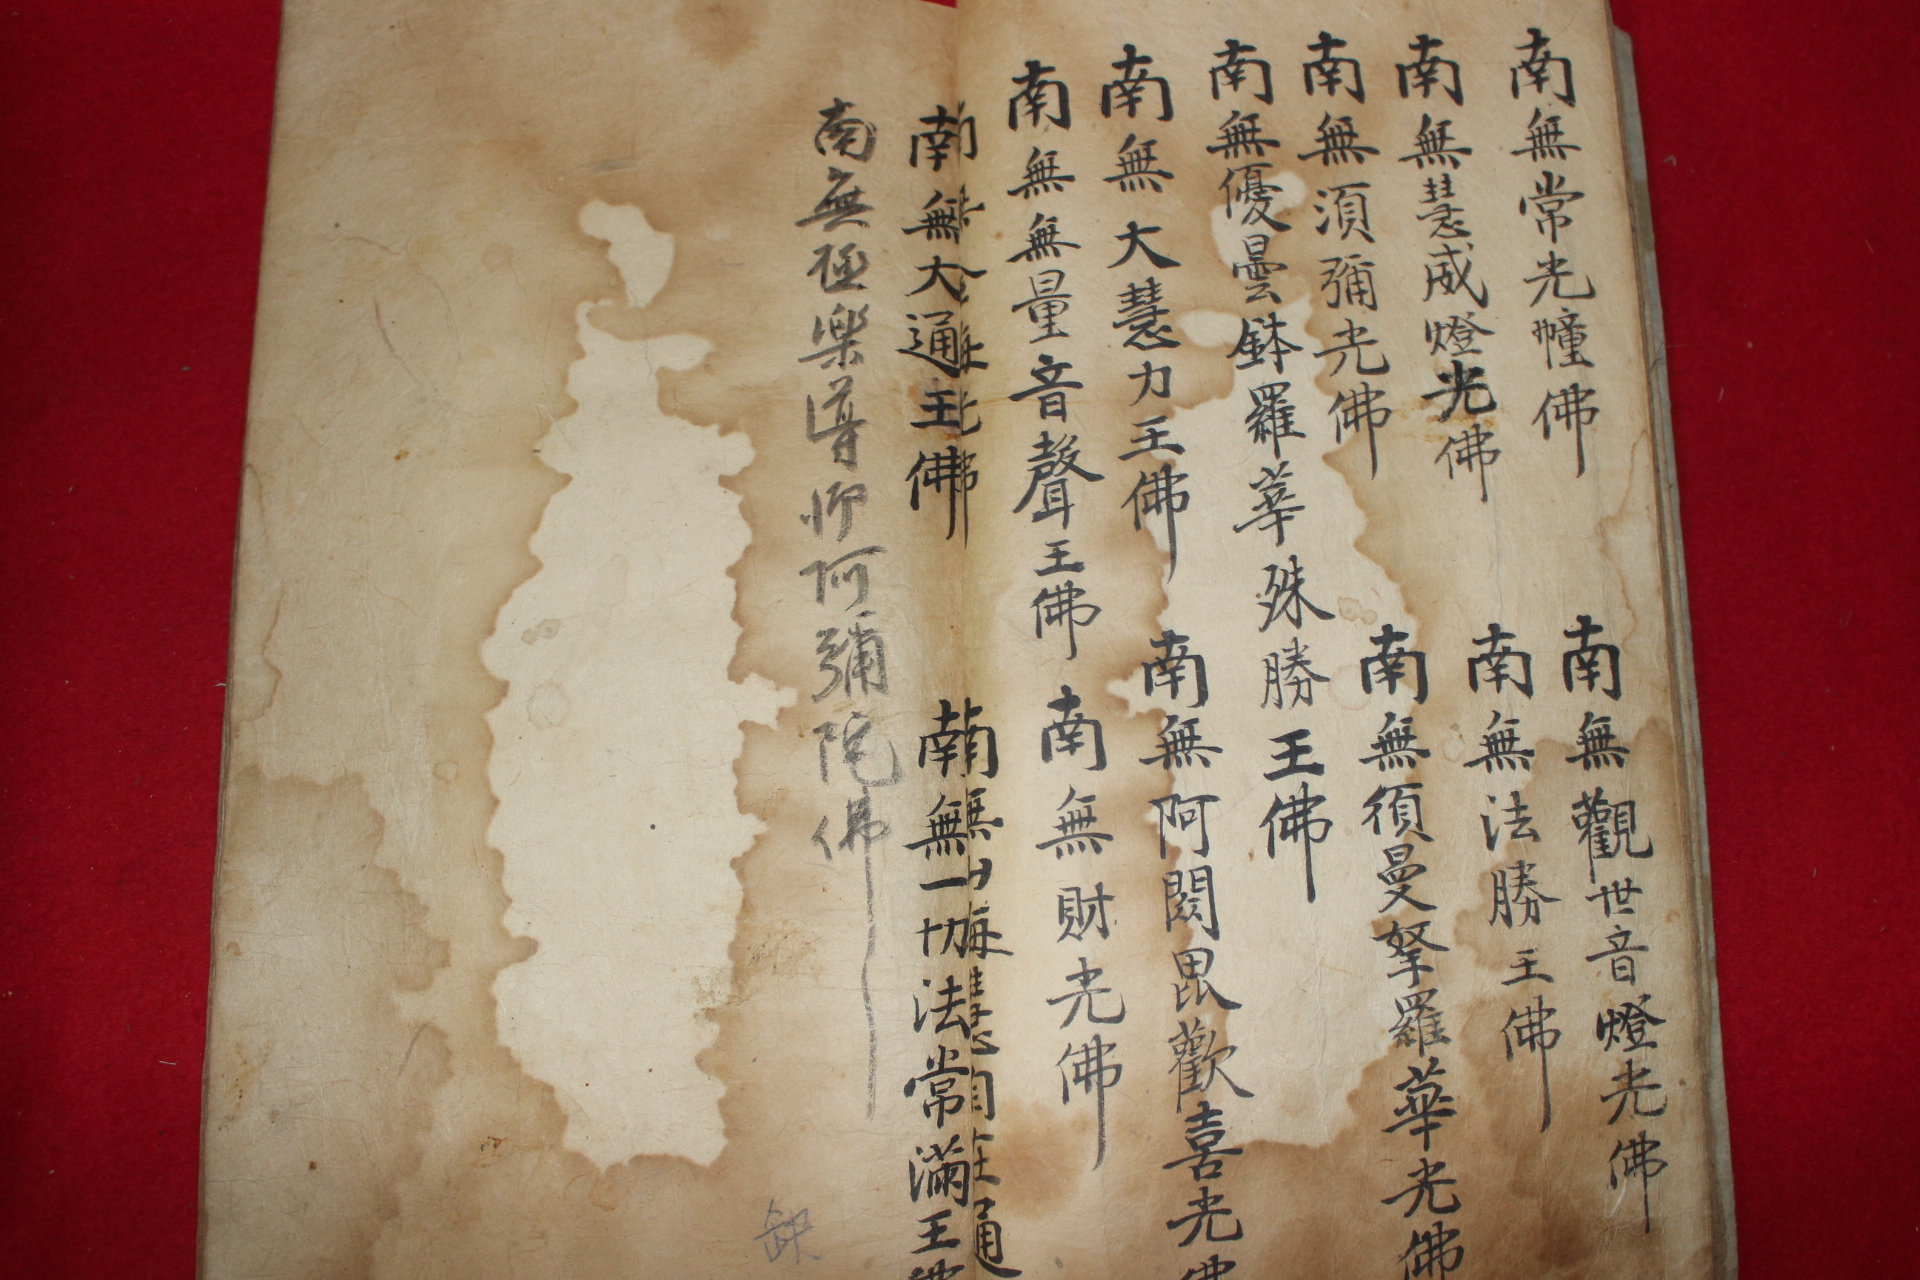 南無常光幢佛
南無觀世音燈光佛
南無慧威燈光佛
南無法勝王佛
南無須彌光佛
南無須曼拏羅華光佛
南無優曇鉢羅華殊勝王佛
南無大慧力王佛
南無阿閦毘歡喜光佛
南無無量音聲王佛
南無財光佛
南無大通王佛
南無一切法常滿王佛
南無極樂導師阿彌陀佛